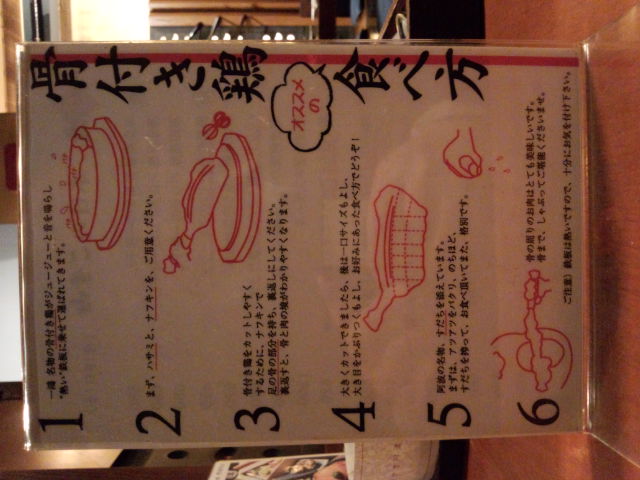 骨付き鶏
オススメ
の
食べ方
1
一鴻 名物の骨付き鶏がジュージューと音を鳴らし
"熱い"鉄板に乗せて運ばれてきます。
2
まず、ハサミと、ナフキンを、ご用意ください。
3
骨付き鶏をカットしやすく
するために、ナフキンで
足の骨の部分を持ち、裏返しにしてください。
裏返すと、骨と肉の境がわかりやすくなります。
4
大きくカットできましたら、後は一口サイズもよし、
大き目をかぶりつくもよし、お好みにあった食べ方でどうぞ！
5
阿波の名物、すだちを添えています。
まずは、アツアツをパクリ、のちほど、
すだちを搾って、お食べ頂いてまた、格別です。
6
骨の周りのお肉はとても美味しいです。
骨まで、しゃぶってご堪能くださいませ。
ご注意）鉄板は熱いですので、十分にお気を付け下さい。